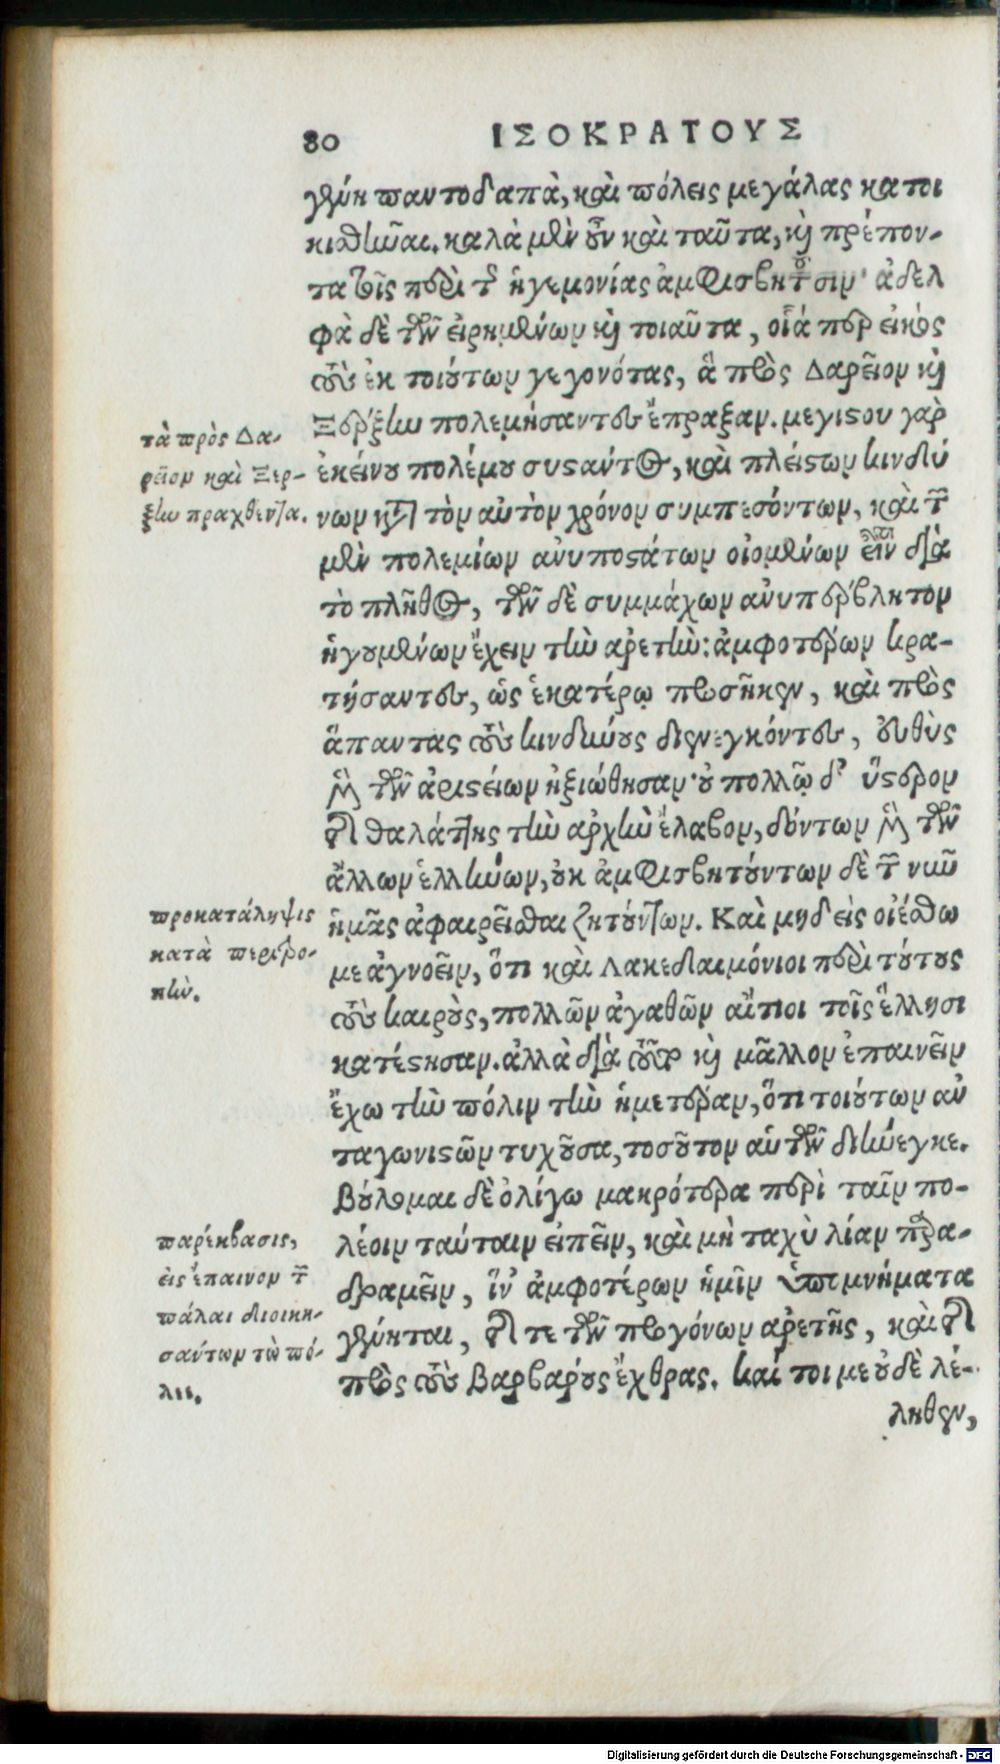 80 ΙΣΟΚΡΑΤΟΥΣ
γένη παντοδαπὰ, καὶ πόλεις μεγάλας κατοι
κισθῆναι. καλὰ μὲν οὖν καὶ ταῦτα, καὶ πρέπον-
τα τοῖς περὶ τῆς ἡγεμονίας ἀμφισβητοῦσιν· ἀδελ
φὰ δὲ τῶν εἰρημένων καὶ τοιαῦτα, οἷά περ εἰκὸς
τοὺς ἐκ τοιούτων γεγονότας, ἃ πρὸς Δαρεῖον καὶ
Ξέρξην πολεμήσαντες ἔπραξαν. μεγίστου γὰρ
τὰ πρὸς Δα-
ρεῖον καὶ Ξέρ-
ξην πραχθέντα.
ἐκείνου πολέμου συστάντος, καὶ πλείστων κινδύ
νων κατὰ τὸν αὐτὸν χρόνον συμπεσόντων, καὶ τῶν
μὲν πολεμίων ἀνυποστάτων οἰομένων εἶναι διὰ
τὸ πλῆθος, τῶν δὲ συμμάχων ἀνυπέρβλητον
ἡγουμένων ἔχειν τὴν ἀρετήν: ἀμφοτέρων κρα-
τήσαντες, ὡς ἑκατέρῳ προσῆκεν, καὶ πρὸς
ἅπαντας τοὺς κινδύνους διενεγκόντες, εὐθὺς
μὲν τῶν ἀριστείων ἠξιώθησαν· οὐ πολλῷ δ' ὕστερον
τῆς θαλάττης τὴν ἀρχὴν ἔλαβον, δόντων μὲν τῶν
ἄλλων ἑλλήνων, οὐκ ἀμφισβητούντων δὲ τῶν νῦν
ἡμᾶς ἀφαιρεῖσθαι ζητούντων. Καὶ μηδεὶς οἰέσθω
προκατάληψις
κατὰ περιτρο-
πήν.
με ἀγνοεῖν, ὅτι καὶ Λακεδαιμόνιοι περὶ τούτους
τοὺς καιροὺς, πολλῶν ἀγαθῶν αἴτιοι τοῖς ἕλλησι
κατέστησαν. ἀλλὰ διὰ τοῦτο καὶ μᾶλλον ἐπαινεῖν
ἔχω τὴν πόλιν τὴν ἡμετέραν, ὅτι τοιούτων ἀν
ταγωνιστῶν τυχοῦσα, τοσοῦτον αὐτῶν διήνεγκε.
Βούλομαι δὲ ὀλίγῳ μακρότερα περὶ ταῖν πο-
λέοιν ταύταιν εἰπεῖν, καὶ μὴ ταχὺ λίαν παρα-
παρέκβασις,
εἰς ἔπαινον τῶν
πάλαι διοικη-
σάντων τὼ πό-
λιι.
δραμεῖν, ἵν' ἀμφοτέρων ἡμῖν ὑπομνήματα
γένηται, τῆς τε τῶν προγόνων ἀρετῆς, καὶ τῆς
πρὸς τοὺς Βαρβάρους ἔχθρας. καί τοι με οὐδὲ λέ-
ληθεν,
Digitalisierung gefördert durch die Deutsche Forschungsgemeinschaft - DFG